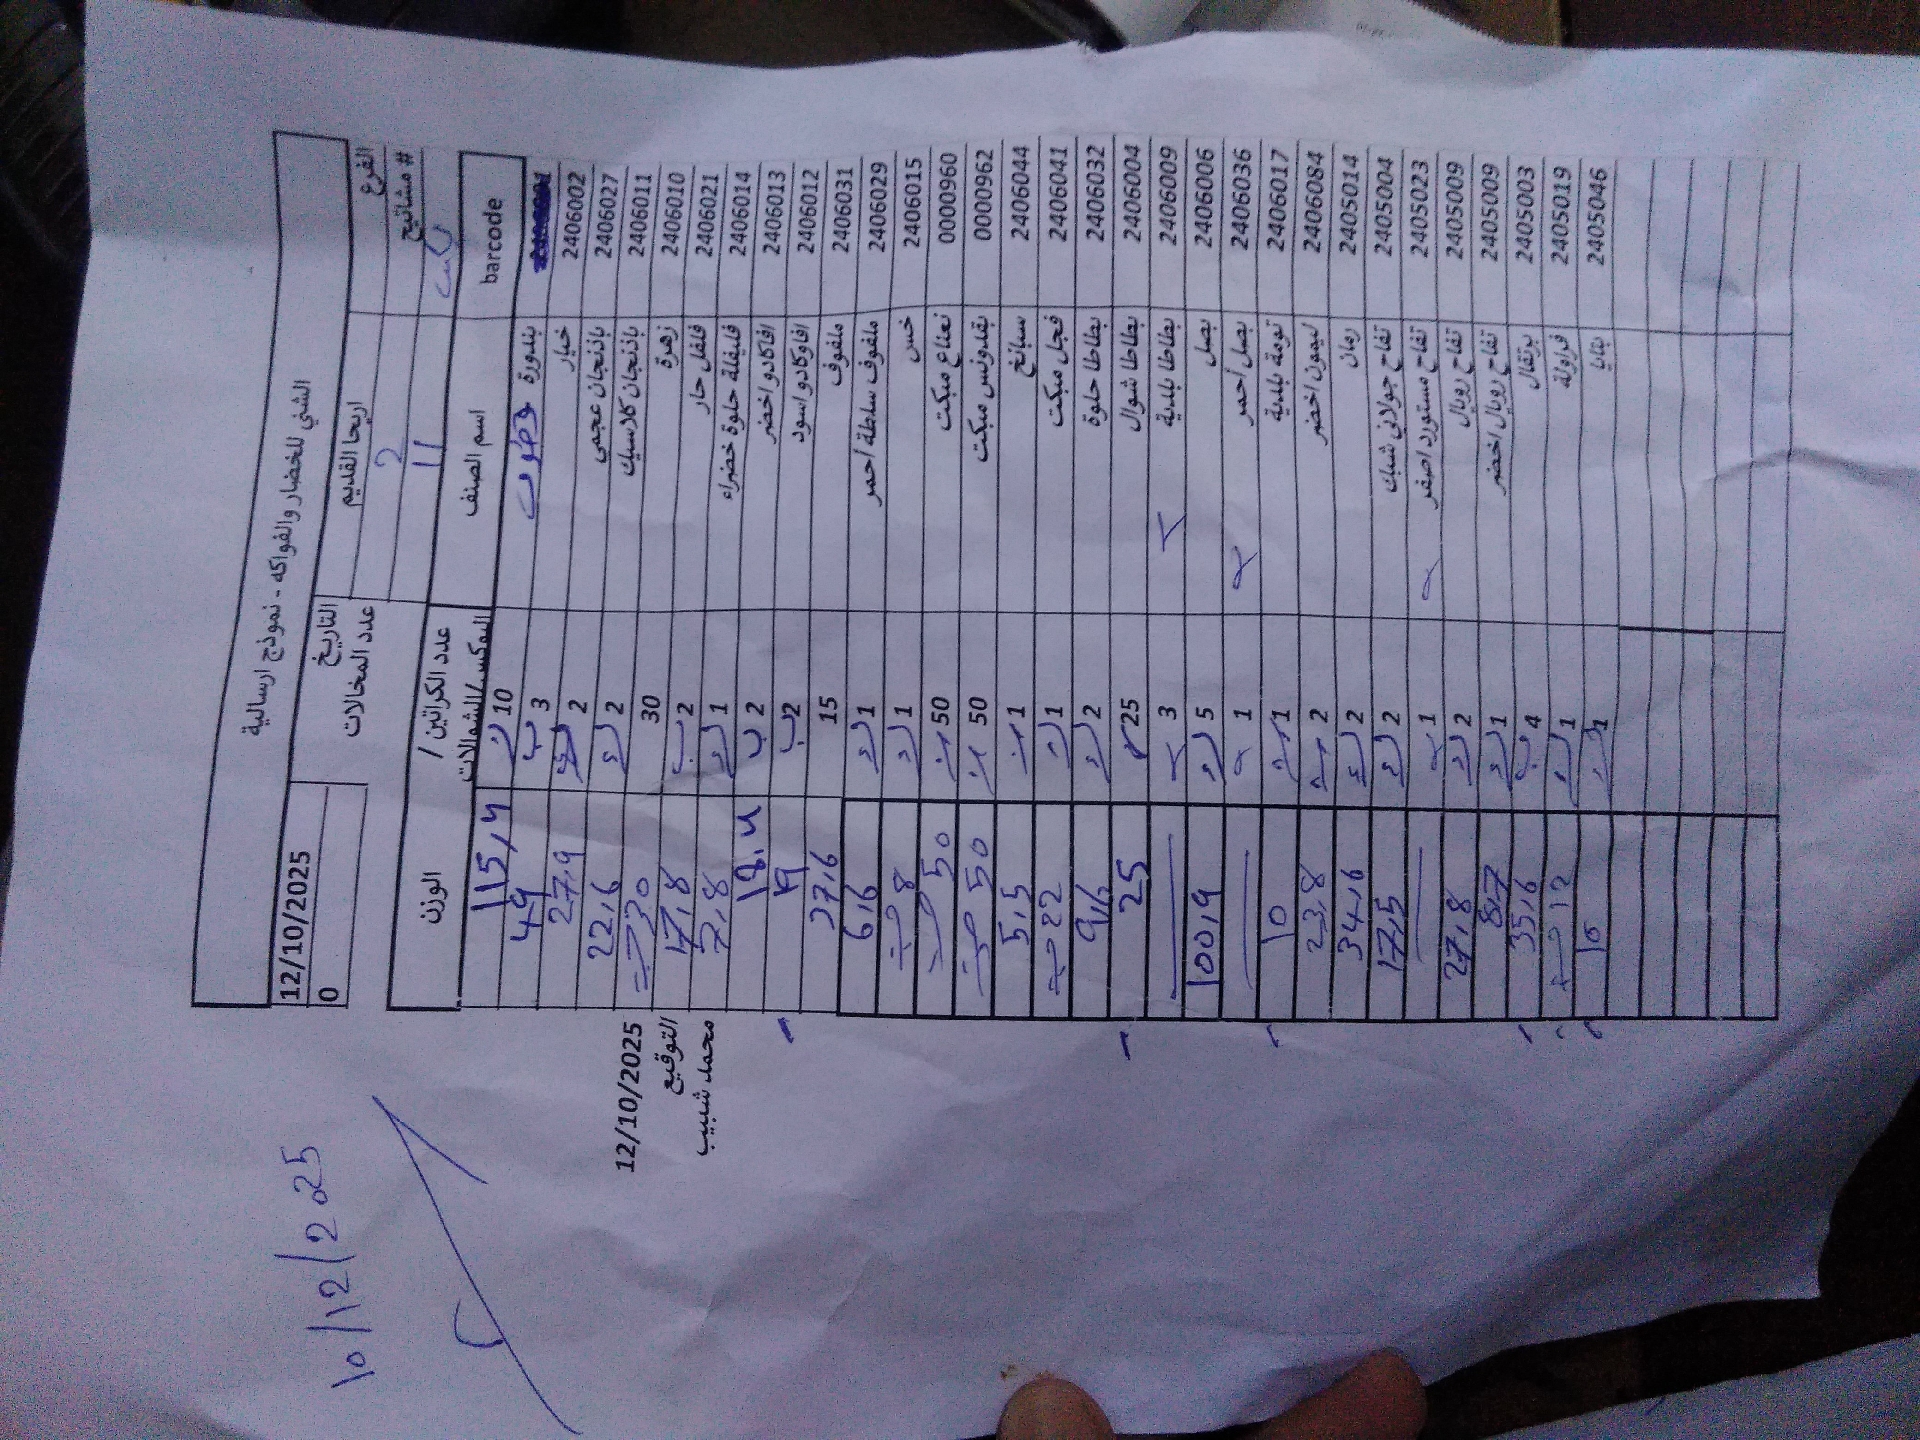 الشني للخضار والفواكه - نموذج ارسالية
الفرع اريحا القديم التاريخ 12/10/2025
# مشاتيح 2 عدد المخالات 0
11
barcode اسم الصنف عدد الكراتين / البوكس/الشوالات الوزن
بندورة 10 115,4
2406002 خيار 3 49
2406027 باذنجان عجمي 2 27.9
2406011 باذنجان كلاسيك 2 22,6
2406010 زهرة 30 30
2406021 فلفل حار 2 17,8
2406014 فليفلة حلوة خضراء 1 7,8
2406013 افاكادو اخضر 2
2406012 افاوكادو اسود 2 9
2406031 ملفوف 15 27,6
2406029 ملفوف سلطة احمر 1 6,6
2406015 خس 1 8
0000960 نعناع مبكت 50 50
0000962 بقدونس مبكت 50 50
2406044 سبانخ 1 5,5
2406041 فجل مبكت 1 22
2406032 بطاطا حلوة 2 9,6
2406004 بطاطا شوال 25 25
2406009 بطاطا بلدية 3
2406006 بصل 5 100,9
2406036 بصل احمر 1
2406017 تومة بلدية 1 10
2406084 ليمون اخضر 2 23,8
2405014 رمان 2 34,6
2405004 تفاح جولاني شبك 2 17,5
2405023 تفاح مستورد اصفر 1
2405009 تفاح رويال 2 27,8
2405009 تفاح رويال اخضر 1 8,7
2405003 برتقال 4 35,6
2405019 فراولة 1 12
2405046 بابايا 1 10
12/10/2025
التوقيع
محمد شبيب
10/12/2025